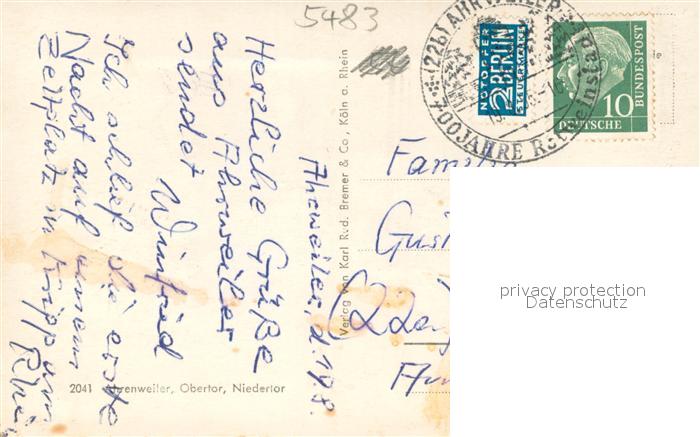 5483
(22b) AHRWEILER
700 JAHRE Rotweinstadt
NOTOPFER
2 BERLIN
STEUERMARKE
10
DEUTSCHE
BUNDESPOST
Ahrweiler, d. 1.8.
Herzliche Grüße
aus Ahrweiler
sendet
Winfried
Ich schlief die erste
Nacht auf einem
Zeltplatz in Kripp am
Rhein
Verlag von Karl R.v.d. Bremer & Co., Köln a. Rhein
Familie
(22
2041 Ahrenweiler, Obertor, Niedertor
privacy protection
Datenschutz